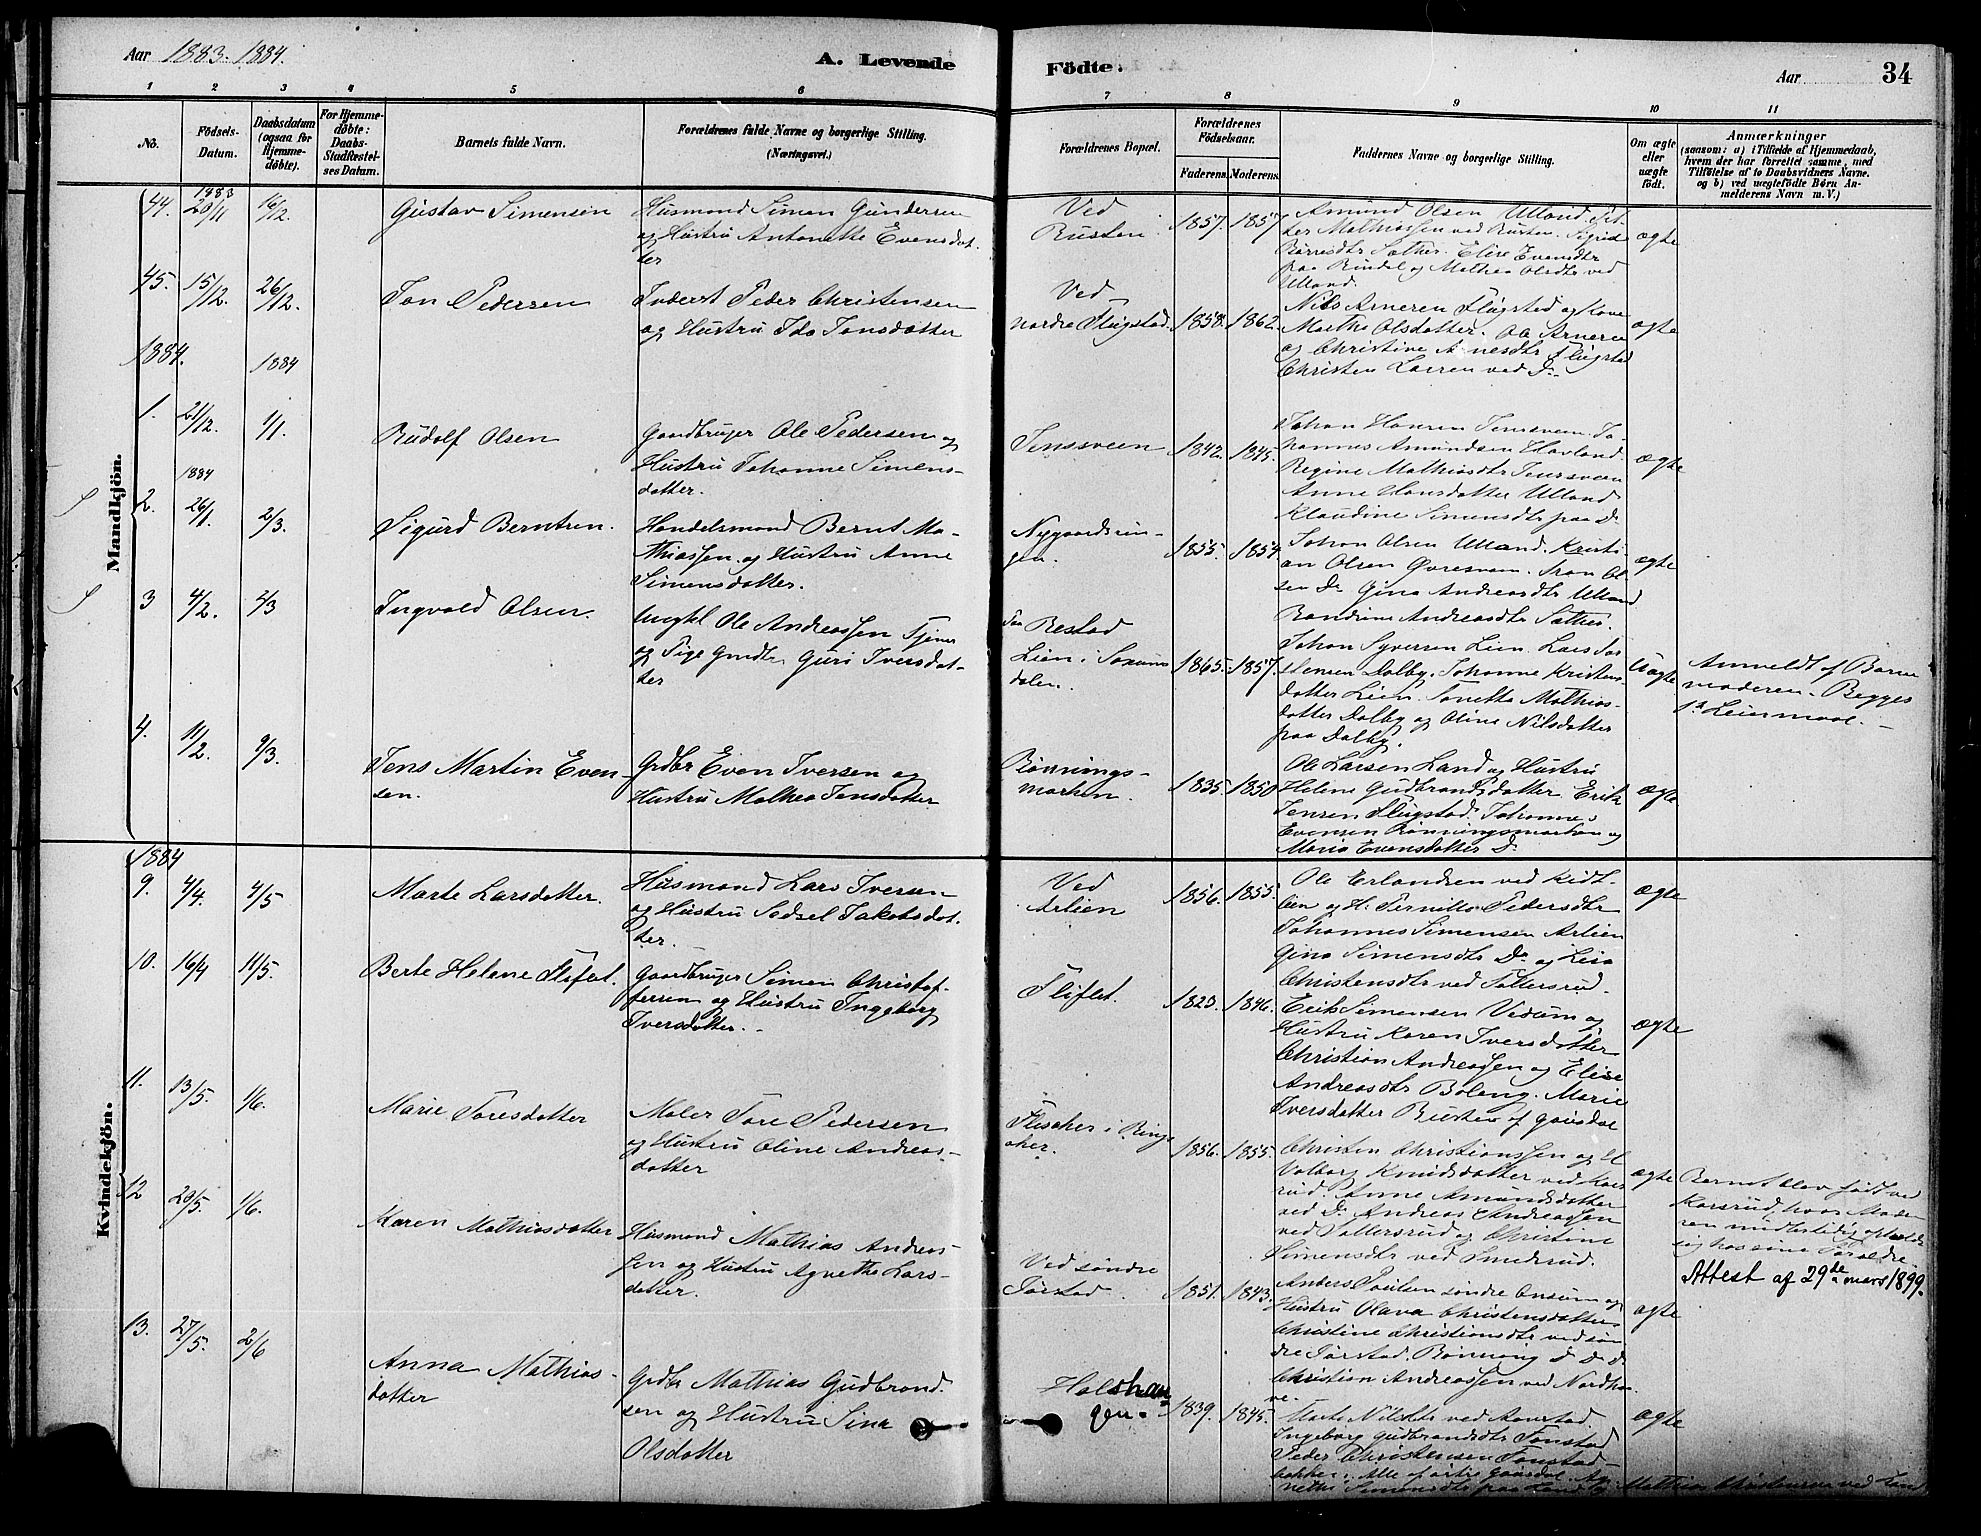 Aar 1883-1884.
A. Levende
Födte.
Aar
34
1
2
3
4
5
6
7
8
9
10
11
No.
Födsels-
Datum.
Daabsdatum
(ogsaa for
Hjemme-
döbte).
For Hjemme-
döbte:
Daabs-
Stadfæstel-
ses Datum.
Barnets fulde Navn.
Forældrenes fulde Navne og borgerlige Stilling.
(Næringsvei.)
Forældrenes Bopæl.
Forældrenes
Födselsaar.
Faderens.
Moderens.
Faddernes Navne og borgerlige Stilling.
Om ægte
eller
uægte
födt.
Anmærkninger
(saasom: a) i Tilfælde af Hjemmedaab,
hvem der har forrettet samme, med
Tilföielse af to Daabsvidners Navne.
og b) ved uægtefödte Börn An-
melderens Navn m. V.)
Mandkjön.
44.
1883
20/11
16/12.
Gustav Simensen
Husmand Simen Gundersen
og Hustru Antonette Evensdat-
ter
Ved
Rusten.
1857.
1857
Amund Olsen Ulland. Pet-
ter Mathiassen ved Rusten. Sigrid
Børresdtr Sother. Elise Evensdtr
paa Rindal og Mathea Olsdtr ved
Ulland.
ægte
45.
15/12.
26/12.
Jon Pedersen
Inderst Peder Christensen
og Hustru Ida Jonsdatter
Ved
nordre Flugstad.
1858.
1862.
Nils Arnesen Flugstad og Kone
Marthe Olsdatter. Ole Arnesen
og Christine Arnesdtr Flugstad
Christen Larsen ved Do
ægte
1884.
1884
1.
21/12.
1/1.
Rudolf Olsen
Gaardbruger Ole Pedersen og
Hustru Johanne Simens-
datter.
Jensveen
1842.
1845.
Johan Hansen Jensveen. Jo-
hannes Amundsen Havland.
Regine Mathiasdtr Jensveen
Anne Hansdatter Ulland
Klaudine Simensdtr paa Do
ægte
2.
1884
26/1.
2/3.
Sigurd Berntsen.
Handelsmand Bernt Ma-
thiassen og Hustru Anne
Simensdatter.
Nygaardseien-
gen.
1855.
1854.
Johan Olsen Ulland. Kristi-
an Olsen Øvresveen. Iver Ol-
sen Do Gina Andreasdtr Ulland
Randine Andreasdtr Sother.
ægte
3
4/2.
2/3
Ingvald Olsen.
Ungkl Ole Andreassen Tjener
og Pige Gmdtr Guri Iversdat-
ter
Paa Restad
Lien i Saxum-
dalen.
1865.
1857.
Johan Syversen Lien. Lars Tor-
stensen Dalby. Johanne Kristens-
datter Lien. Janette Mathias-
datter Dalby og Oline Nilsdatter
paa Dalby.
Uægte
Anmeldt af Barne
moderen. Begges
1ste Leiermaal. -
4.
11/2.
9/3.
Jens Martin Even-
sen.
Grdbr Even Iversen og
Hustru Mathea Jensdatter
Rønnings-
marken.
1835.
1850
Ole Larsen Land og Hustru
Helene Gudbrandsdatter. Erik
Jensen Flugstad. Johannes
Evensen Rønningsmarken og
Maria Evensdatter Do
ægte
Kvindekjön.
1884
9.
4/4.
4/5
Marte Larsdatter.
Husmand Lars Iversen
og Hustru Sedsel Jakobsdat-
ter.
Ved
Arlien
1856.
1855.
Ole Erlandsen ved Kidt-
lien og H. Pernille Pedersdtr
Johannes Simensen Arlien
Gina Simensdtr Do og Lisa
Christensdtr ved Sollersrud.
ægte
10.
16/4
11/5.
Berte Helene Fliflet.
Gaardbruger Simen Christof-
fersen og Hustru Ingeborg
Iversdatter.
Fliflet.
1823.
1846.
Erik Simensen Vedum og
Hustru Karen Iversdatter
Christian Andreassen og Elise
Andreasdtr Boleng. Marie
Iversdatter Rusten af Gausdal
ægte
11.
13/5.
1/6.
Marie Toresdatter
Maler Tore Pedersen
og Hustru Oline Andreas-
datter
Fliseker i Ringe
aker.
1856.
1855.
Christen Christiansen og H
Valborg Knudsdatter ved Kors-
rud. Anne Amundsdatter
ved Do Andreas Andreassen
ved Sollersrud og Christine
Simensdtr ved Smedsrud.
ægte
Barnet blev født ved
Korsrud, hvor Mode-
ren midlertidig opholdt
sig hos sine Forældre
Attest af 29de mars 1899.
12
29/5.
1/6.
Karen Mathiasdatter
Husmand Mathias Andreas-
sen og Hustru Agnethe Lars-
datter.
Ved søndre
Tørstad.
1851.
1843.
Anders Poulsen søndre Onsum og
Hustru Olava Christensdatter
Christine Christiansdtr ved søn-
dre Tørstad. Rønnaug D D D
Christian Andreassen ved Nordho-
ve.
ægte
13.
27/5.
2/6
Anna Mathias-
datter
Grdbr Mathias Gudbrand-
sen og Hustru Sina
Olsdatter
Holshau
gen.
1839.
1845.
Marte Nilsdtr ved Aanstad.
Ingeborg Gudbrandsdtr Fonstad
Peder Christensen Fonstad-
bakken. Alle af østre Gausdal. Ag-
nethe Simensdtr paa Land og Mathias Christensen ved Land
ægte